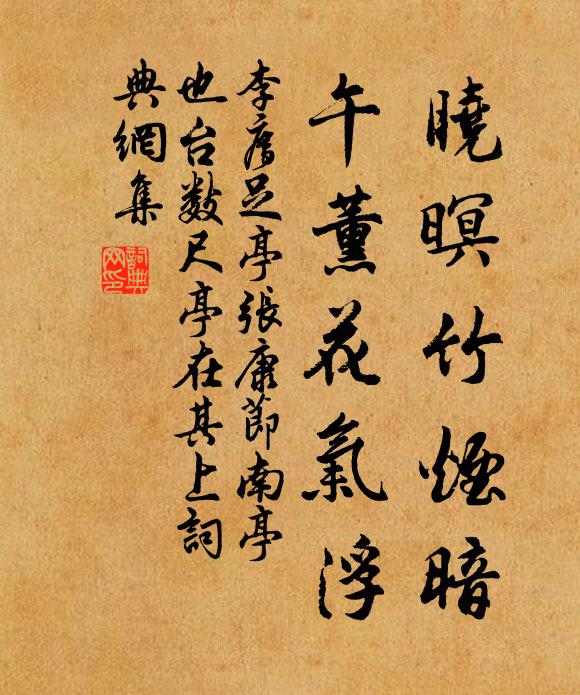 曉暝竹煙暗
午薰花氣浮
李唐足亭張康節南亭
也台數尺亭在其上詞
典網集
詞典網印